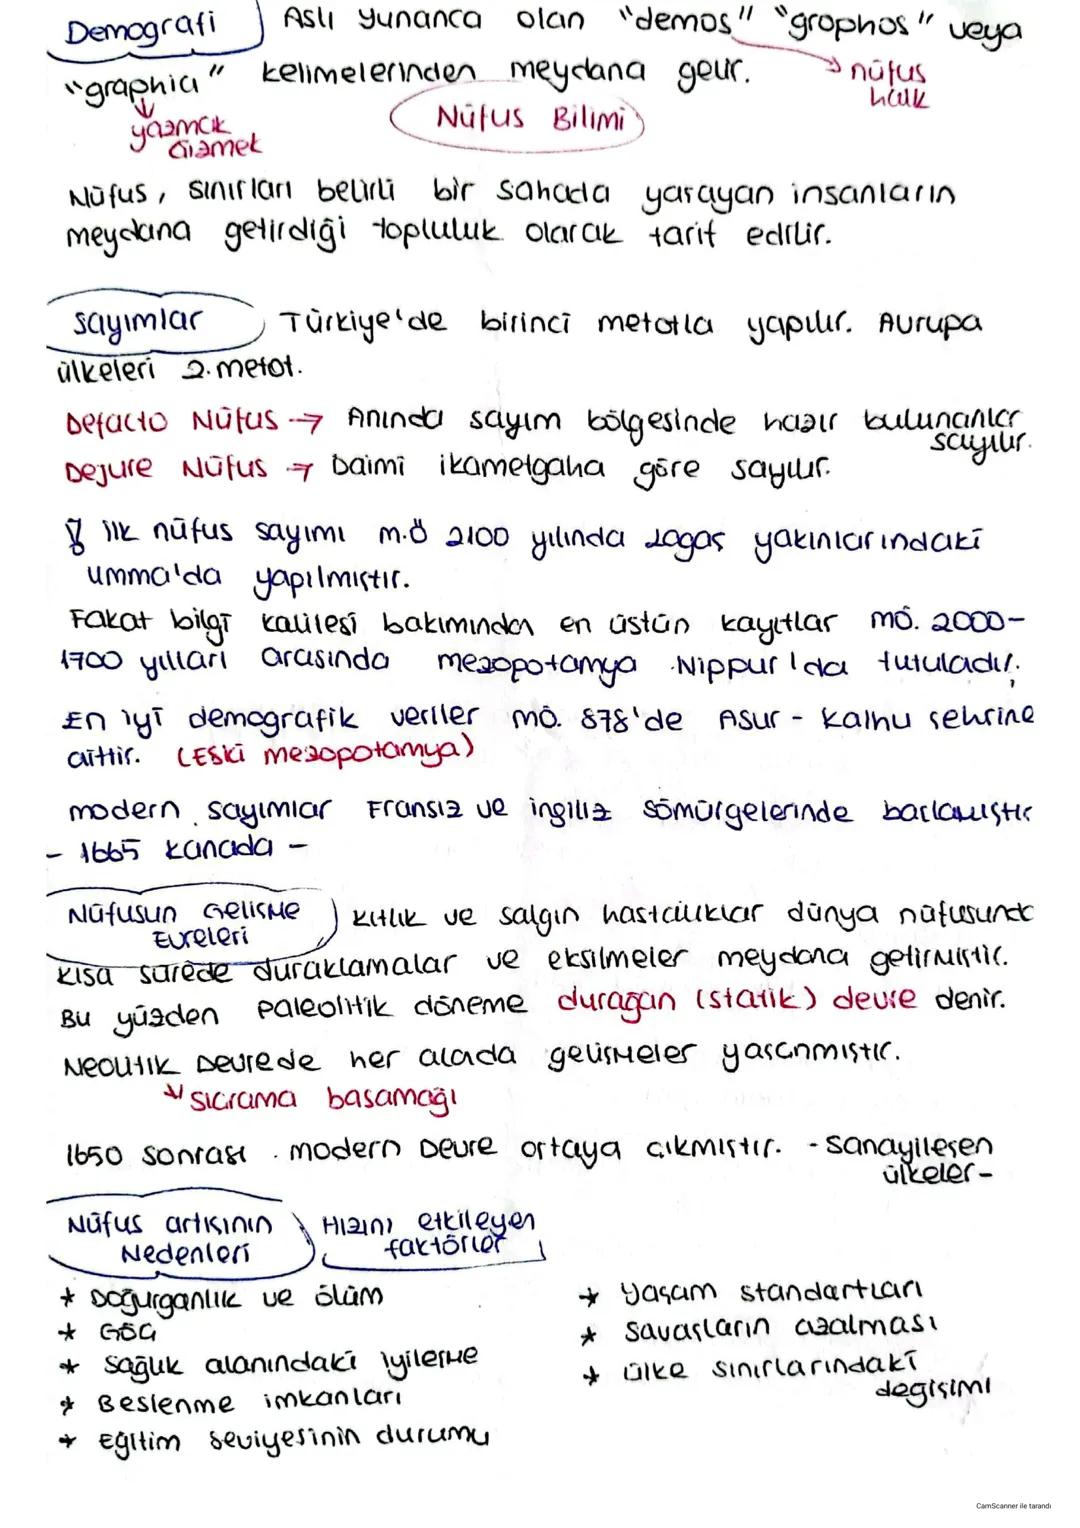 Demografi Aslı yunanca olan "demos" "graphos" veya
"graphia" kelimelerinden meydana gelir. → nüfus
halk
yazmak
çizmek
Nüfus Bilimi
Nüfus, sınırları belirli bir sahada yaşayan insanların
meydana getirdiği topluluk olarak tarif edilir.
Sayımlar Türkiye'de birinci metotla yapılır. Avrupa
ülkeleri 2. metot.
Defacto Nüfus → Anında sayım bölgesinde hazır bulunanlar
sayılır.
Dejure Nüfus → Daimi ikametgaha göre sayılır.
ilk nüfus sayımı m.ö 2100 yılında Lagaş yakınlarındaki
Umma'da yapılmıştır.
Fakat bilgi kalitesi bakımından en üstün kayıtlar mö. 2000-
1700 yılları arasında mezopotamya Nippur'da tutuladır.
En iyi demografik veriler mö. 878'de Asur - Kalhu şehrine
aittir. (Eski mezopotamya)
modern sayımlar Fransız ve ingiliz sömürgelerinde başlamıştır
- 1665 Kanada -
Nüfusun Gelişme
Evreleri
Kıtlık ve salgın hastalıklar dünya nüfusunda
kısa sürede duraklamalar ve eksilmeler meydana getirmiştir.
Bu yüzden paleolitik döneme durağan (statik) devre denir.
Neolitik Devrede her alada gelişmeler yaşanmıştır.
↓ sıçrama basamağı
1650 sonrası modern Devre ortaya çıkmıştır. - Sanayileşen
ülkeler -
Nüfus artışının
Nedenleri
Hızını etkileyen
faktörler
* Doğurganlık ve ölüm
* Göç
* Sağlık alanındaki iyileşme
* Beslenme imkanları
* Eğitim seviyesinin durumu
* Yaşam standartları
* Savaşların azalması
* Ülke sınırlarındaki
değişimi
CamScanner ile tarandı